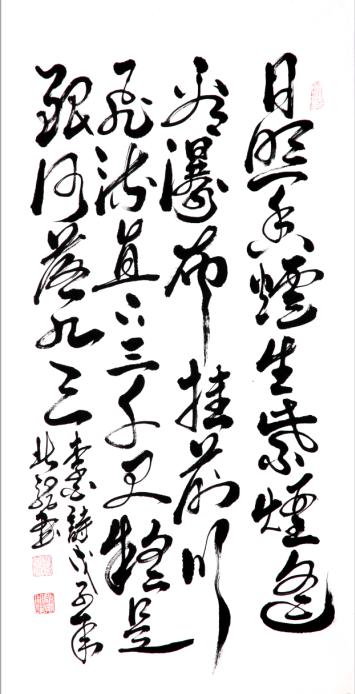 日照香爐生紫煙遙
看瀑布挂前川
飛流直下三千尺疑是
銀河落九天
李白詩戊子年